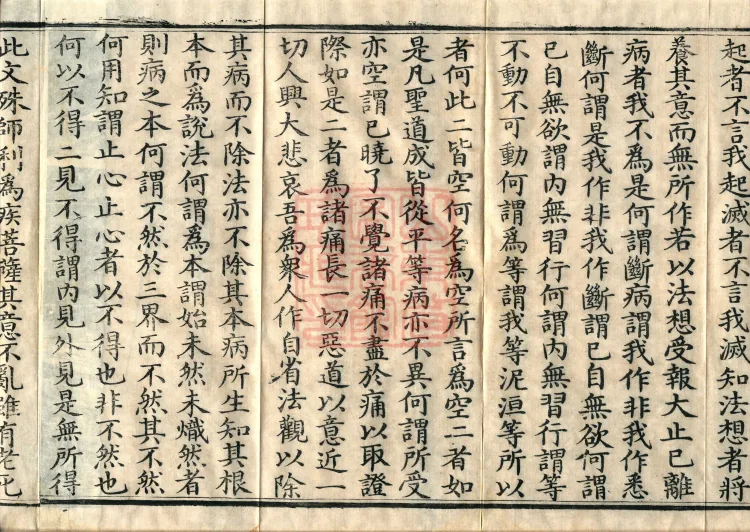 起者不言我起滅者不言我滅知法想者將
養其意而無所作若以法想受報大止已離
病者我不為是何謂斷病謂我作非我作悉
斷何謂是我作非我作斷謂已自無欲何謂
已自無欲謂內無習行何謂內無習行謂等
不動不可動何謂為等謂我等泥洹等所以
者何此二皆空何名為空所言為空二者如
是凡聖道成皆從平等病亦不異何謂所受
亦空謂已曉了不覺諸痛不盡於痛以取證
際如是二者為諸痛長一切惡道以意近一
切人興大悲哀吾為衆人作自省法觀以除
其病而不除法亦不除其本病所生知其根
本而為說法何謂為本謂始未然未熾然者
則病之本何謂不然於三界而不然其不然
何用知謂止心止心者以不得也非不然也
何以不得二見不得謂內見外見是無所得
此文殊師利為疾菩薩其意不亂雖有老死